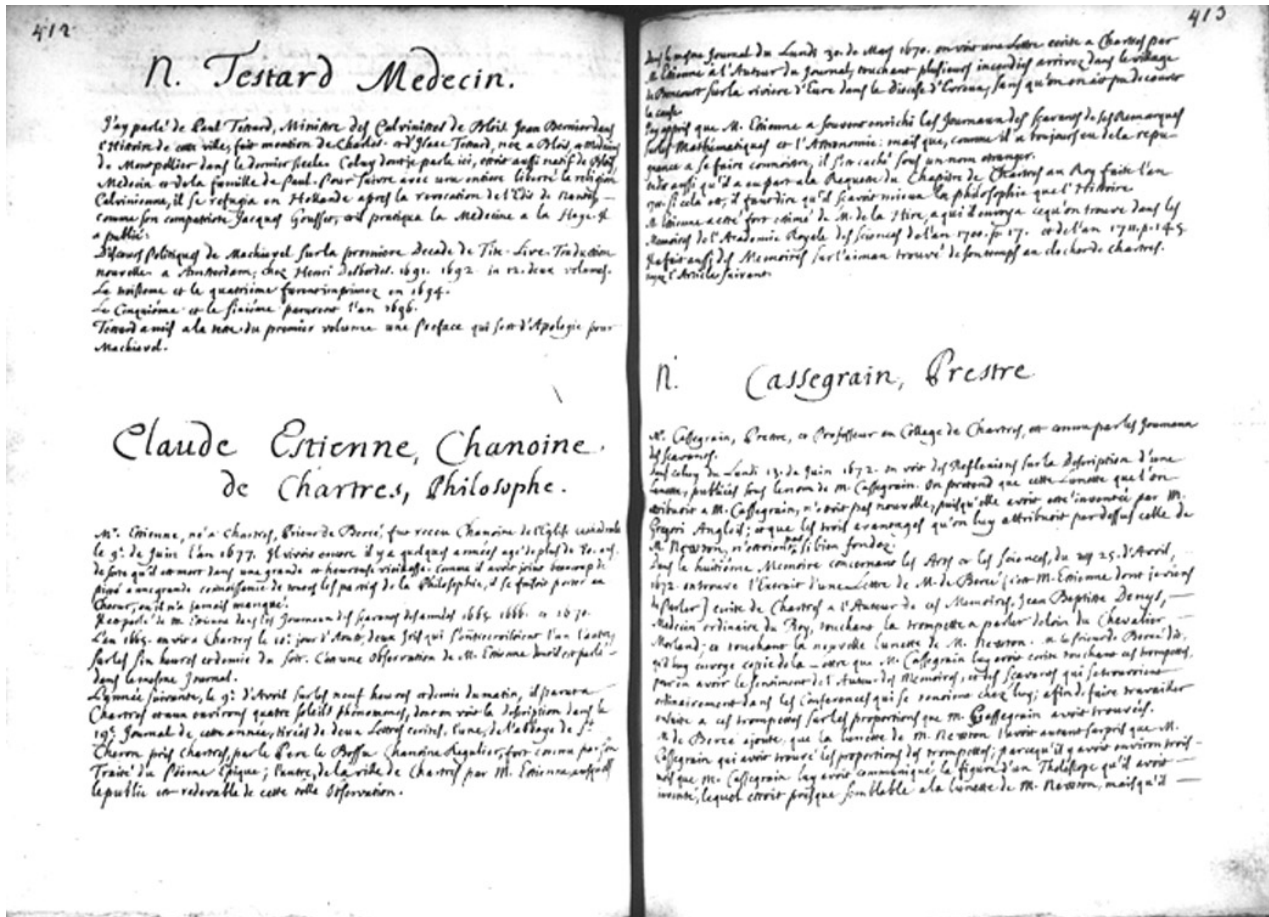 412
N. Testard Medecin.
J'ay parlé de Paul Testard, Ministre des Calvinistes de Blois. Jean Bernier dans
l'Histoire de cette ville, fait mention de Charles et d'Isaac Testard, néz a Blois, et Medecins
de Montpellier dans le dernier siecle. Celuy dont je parle ici, etoit aussi natif de Blois,
Medecin et de la famille de Paul. Pour suivre avec une entiere liberté la religion
Calvinienne, il se refugia en Hollande apres la revocation de l'Edit de Nantes,
comme son compatriote Jacques Grousset, et il pratiqua la Medecine a la Haye. Il
a publié:
Discours Politiques de Machiavel sur la premiere Decade de Tite-Live. Traduction
nouvelle. a Amsterdam, chez Henri Desbordes. 1691. 1692. in 12. deux volumes.
Le troisieme et le quatriéme furent imprimez en 1694.
Le Cinquiéme et le sixiéme parurent l'an 1696.
Testard a mis a la teste du premier volume une Preface qui sert d'Apologie pour
Machiavel.
Claude Estienne, Chanoine
de Chartres, Philosophe.
Mr. Etienne, né a Chartres, Prieur de Bercé, fut receu Chanoine de l'Eglise cathedrale
le 9e. de Juin l'an 1677. Il vivoit encore il y a quelques années agé de plus de 80. ans.
de sorte qu'il est mort dans une grande et heureuse vieillesse. comme il avoit joint beaucoup de
pieté a une grande connoissance de toutes les parties de la Philosophie, il se faisoit porter au
Choeur, ou il n'a jamais manqué.
Il est parlé de M. Etienne dans les Journaux des scavans des années 1665. 1666. et 1670.
L'an 1665. on vit a Chartres le 10e. jour d'Aoust, deux Iris qui s'entrecroisoient l'un l'autre,
sur les six heures et demie du soir. C'est une Observation de M. Etienne dont il est parlé
dans le mesme Journal.
L'année suivante, le 9e. d'Avril sur les neuf heures et demie du matin, il parut a
Chartres et aux environs quatre soleils phenomenes, dont on voit la description dans le
19e. Journal de cette année, tirées de deux Lettres ecrites, l'une, de l'abbaye de St.
Cheron près Chartres, par le Pere le Bossu Chanoine Regulier, fort connu par son
Traité du Poëme Epique; l'autre, de la ville de Chartres par M. Etienne, auquel
le public est redevable de cette Observation.
413
Dans le mesme Journal du Lundi 30. de Mars 1670. on voit une Lettre ecrite a Chartres par
M. Etienne à l'Auteur du Journal, touchant plusieurs incendies arrivez dans le village
de Boncourt sur la riviere d'Eure dans le diocese d'Evreux, sans qu'on en ait pu decouvrir
la cause.
J'ay appris que M. Etienne a souvent enrichi les Journaux des scavans de ses Remarques
sur les Mathématiques et l'Astronomie: mais que, comme il a toujours eu de la repu-
gnance a se faire connoistre, il s'est caché sous un nom etranger.
qu'il a eu part a la Requeste du Chapitre de Chartres au Roy faite l'an
si cela est, il faut dire qu'il scavoit mieux la philosophie que l'Histoire
M. Etienne a eté fort estimé de M. de la Hire, a qui il envoya ce qu'on trouve dans les
Memoires de l'Academie Royale des sciences de l'an 1700. p. 17. et de l'an 1711. p. 145.
Il a fait aussi des Memoires sur l'aiman trouvé de son temps au clocher de chartres.
voyez l'Article suivant.
N. Cassegrain, Prestre
Mr. Cassegrain, Prestre, et Professeur au College de Chartres, est connu par les Journaux
des scavans.
Dans celuy du Lundi 13. de Juin 1672. on voit des Reflexions sur la Description d'une
Lunette, publiées sous le nom de M. Cassegrain. On pretend que cette Lunette que l'on
attribuoit a M. Cassegrain, n'etoit pas nouvelle, puisqu'elle avoit eté inventée par M.
Gregori Anglois; et que les trois avantages qu'on luy attribuoit par dessus celle de
M. Newton, n'etoient pas si bien fondez.
Dans le huitiéme Memoire concernant les Arts et les sciences, du 25. d'Avril,
1672. on trouve l'Extrait d'une Lettre de M. de Bercé [c'est M. Etienne dont je viens
de Parler] ecrite de Chartres a l'Auteur de ces Memoires, Jean Baptiste Denys,
Medecin ordinaire du Roy, touchant la trompette a parler de loin du Chevalier
Morland; et touchant la nouvelle lunette de M. Newton. M. le Prieur de Bercé dit,
qu'il luy envoye copie de la Lettre que M. Cassegrain luy avoit ecrite touchant ces trompettes,
pour en avoir le sentiment de l'Auteur des Memoires, et des scavans qui se trouvoient
ordinairement dans les Conferences qui se tenoient chez luy; afin de faire travailler
ensuite a ces trompettes sur les proportions que M. Cassegrain avoit trouvées.
M. de Bercé ajoute, que la lunette de M. Newton l'avoit autant surpris que M.
Cassegrain qui avoit trouvé les proportions des trompettes; parce qu'il y avoit environ trois
mois que M. Cassegrain luy avoit communiqué la figure d'un Theliscope qu'il avoit
inventé, lequel etoit presque semblable a la lunette de M. Newton, mais qu'il